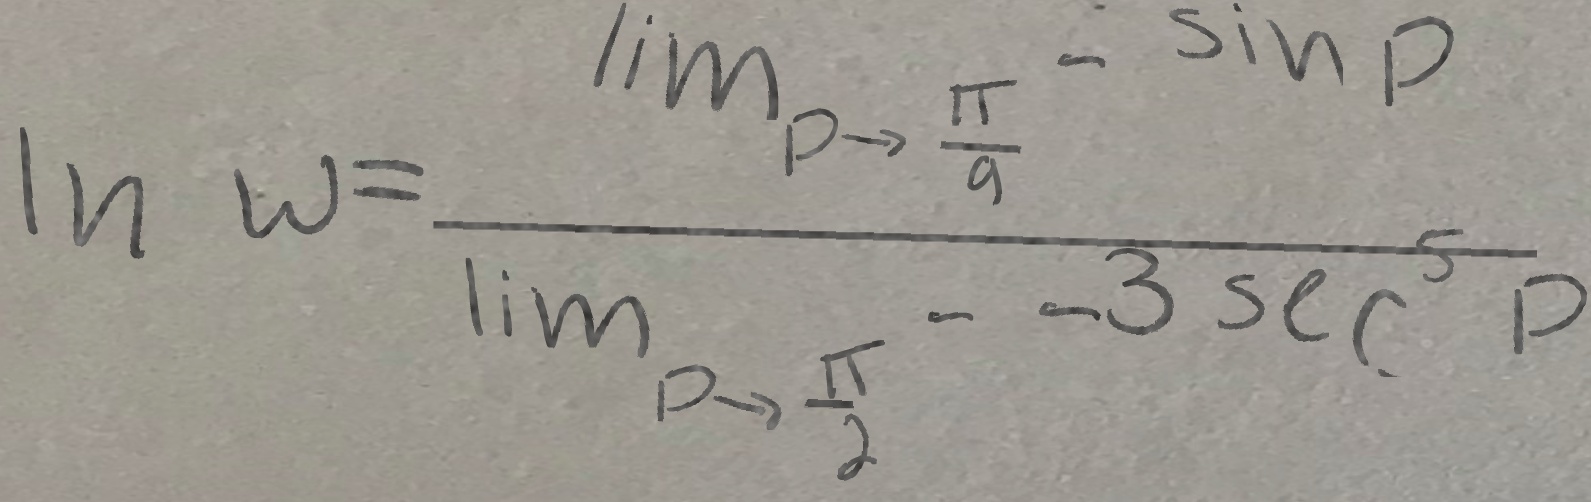 $\ln w = \frac{\lim_{p \to \frac{\pi}{9}^-} \sin p}{\lim_{p \to \frac{\pi}{2}^-} -3 \sec^5 p}$